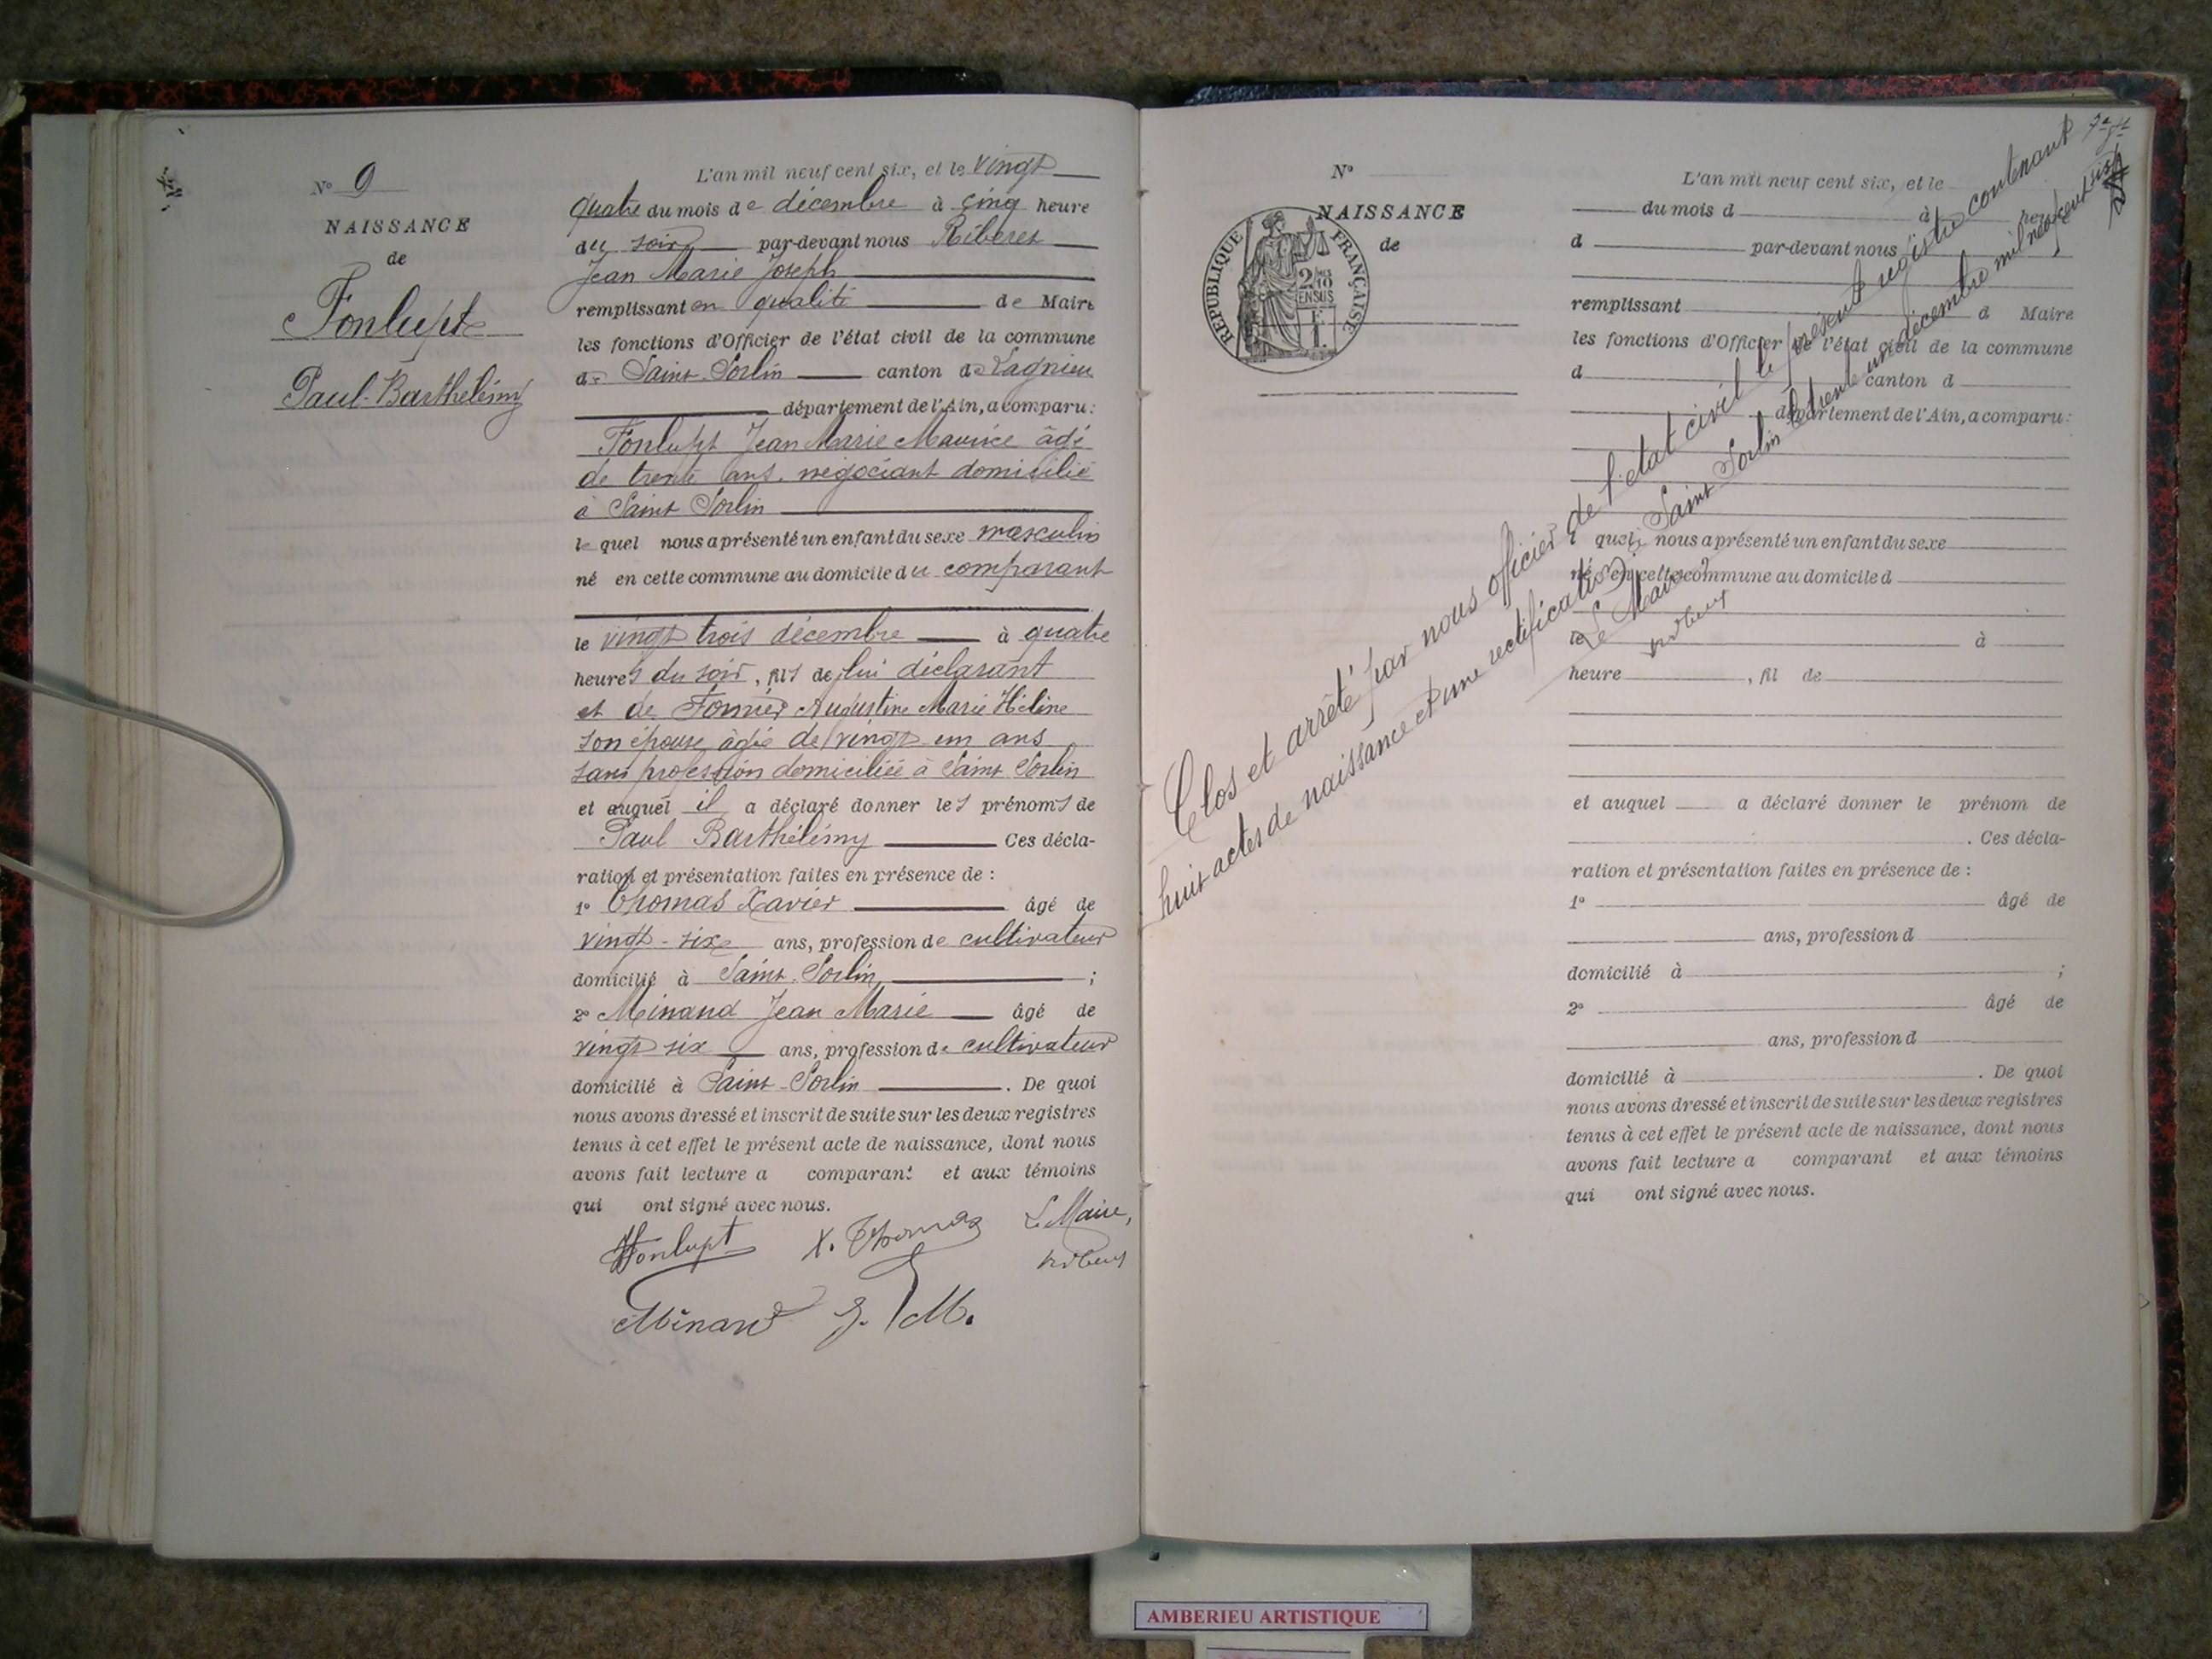 N° 9
NAISSANCE
de
Fonlupt
Paul-Barthélémy
L'an mil neuf cent six, et le vingt
quatre du mois de décembre à cinq heure
du soir par-devant nous Riberet
Jean Marie Joseph
remplissant en qualité de Maire
les fonctions d'Officier de l'état civil de la commune
de Saint-Sorlin canton de Lagnieu
département de l'Ain, a comparu:
Fonlupt Jean Marie Maurice âgé
de trente ans, négociant domicilié
à Saint Sorlin
lequel nous a présenté un enfant du sexe masculin
né en cette commune au domicile du comparant
le vingt trois décembre à quatre
heures du soir, fils de lui déclarant
et de Augustine Marie Hélène
son épouse âgée de vingt un ans
sans profession domiciliée à Saint Sorlin
et auquel il a déclaré donner les prénoms de
Paul Barthélémy Ces décla-
ration et présentation faites en présence de :
1° Thomas Xavier âgé de
vingt-six ans, profession de cultivateur
domicilié à Saint-Sorlin ;
2° Minand Jean Marie âgé de
vingt six ans, profession de cultivateur
domicilié à Saint-Sorlin . De quoi
nous avons dressé et inscrit de suite sur les deux registres
tenus à cet effet le présent acte de naissance, dont nous
avons fait lecture a comparant et aux témoins
qui ont signé avec nous.
Fonlupt X. Thomas Le Maire,
Minand J. M.
N°
NAISSANCE
de
RÉPUBLIQUE FRANÇAISE
2/10
EN SUS
L'an mil neuf cent six, et le
du mois d à heure
d par-devant nous
remplissant d Maire
les fonctions d'Officier de l'état civil de la commune
d canton d
département de l'Ain, a comparu:
quel nous a présenté un enfant du sexe
né en cette commune au domicile d
le à
heure , fil de
et auquel a déclaré donner le prénom de
. Ces décla-
ration et présentation faites en présence de :
1° âgé de
ans, profession d
domicilié à ;
2° âgé de
ans, profession d
domicilié à . De quoi
nous avons dressé et inscrit de suite sur les deux registres
tenus à cet effet le présent acte de naissance, dont nous
avons fait lecture a comparant et aux témoins
qui ont signé avec nous.
Clos et arrêté par nous officier de l'état civil le présent registre contenant
huit actes de naissance et une rectification. Saint Sorlin le trente un décembre mil neuf cent six
Le Maire
AMBERIEU ARTISTIQUE